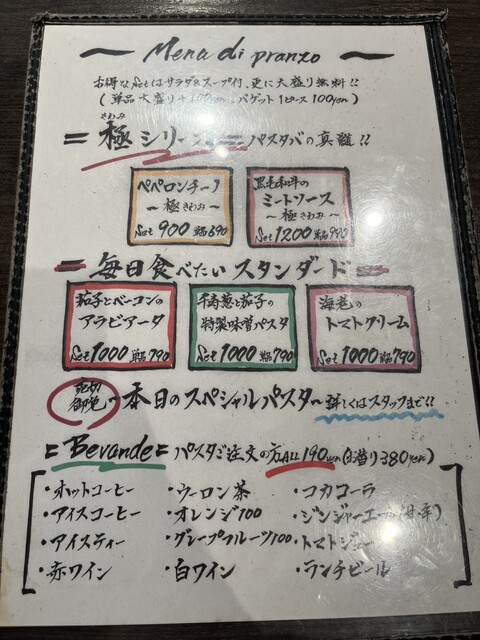 Menu di pranzo
お得なSetはサラダ&スープ付、更に大盛り無料!!
(単品大盛り+100yen、バゲット1ピース100yen)
さわみ
=極シリーズ=パスタバの真髄!!
ペペロンチーノ
〜極さわみ〜
Set 900 単品690
黒毛和牛の
ミートソース
〜極さわみ〜
Set 1200 単品990
=毎日食べたいスタンダード=
茄子とベーコンの
アラビアータ
Set 1000 単品790
千寿葱と茄子の
特製味噌パスタ
Set 1000 単品790
海老の
トマトクリーム
Set 1000 単品790
売切
御免
〜本日のスペシャルパスタ〜詳しくはスタッフまで!!
=Bevande=パスタご注文の方ALL190yen(お替り380yen)
・ホットコーヒー ・ウーロン茶 ・コカコーラ
・アイスコーヒー ・オレンジ100 ・ジンジャーエール(甘・辛)
・アイスティー ・グレープフルーツ100 ・トマトジュース
・赤ワイン ・白ワイン ・ランチビール